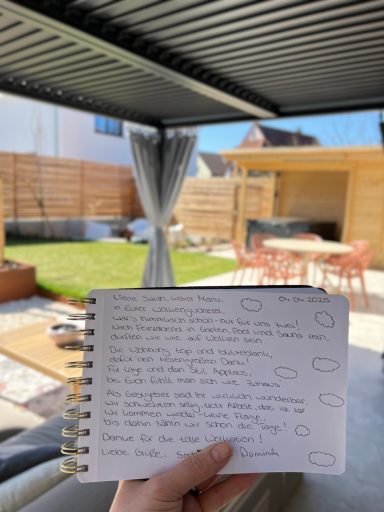 Liebe Sarah, lieber Manu, 04.04.2025
in Eurer Wolkengucherei,
war's himmlisch schön - nur für uns zwei!
Nach Feierabend in Garten, Pool und Sauna rein,
durften wir wie auf Wolken sein.
Die Wohnung top und blitzeblank,
dafür nen riesengroßen Dank!
Für Lage und den Stil Applaus,
bei Euch fühlt man sich wie Zuhaus.
Als Gastgeber seid Ihr wirklich wunderbar,
wir schwebten selig, trotz Arbeit, das ist klar.
Wir kommen wieder - keine Frage,
bis dahin zähln wir schon die Tage!
Danke für die tolle Workation!
Liebe Grüße, Dominik